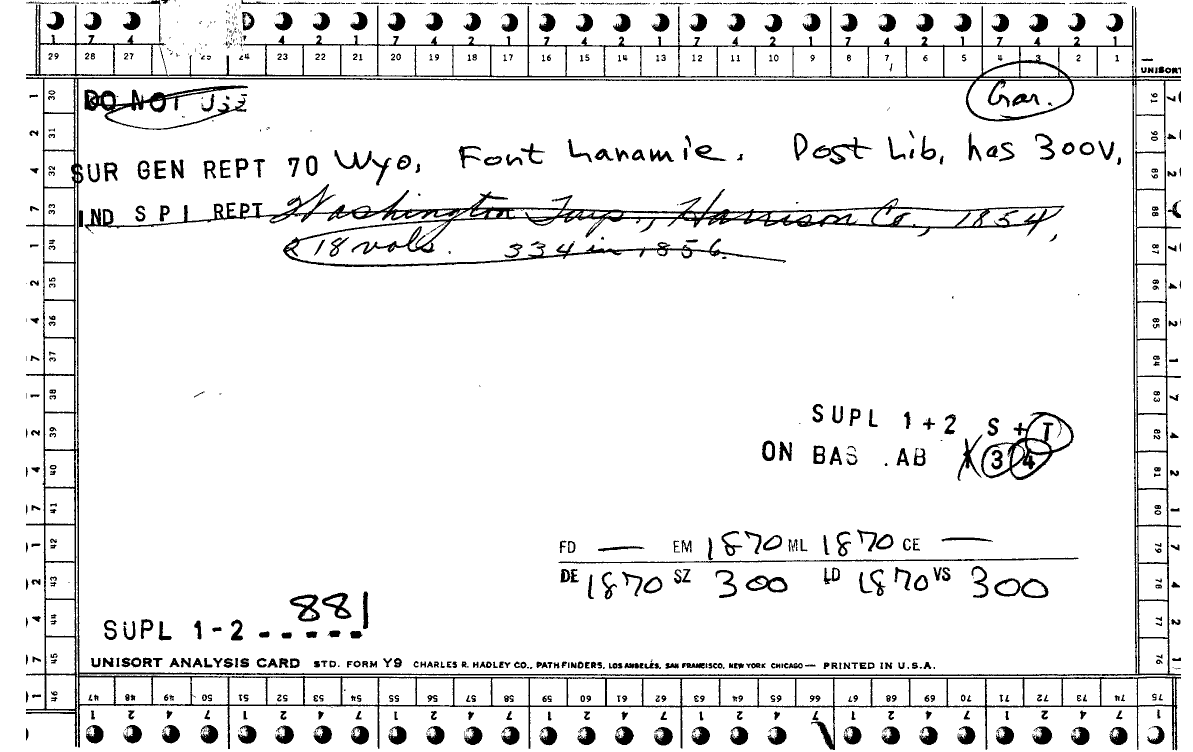 1 7 4 7 4 2 1 7 4 2 1 7 4 2 1 7 4 2 1 7 4 2 1 7 4 2 1
29 28 27 25 24 23 22 21 20 19 18 17 16 15 14 13 12 11 10 9 8 7 6 5 4 3 2 1
UNISORT
DO NOT USE
Gar.
SUR GEN REPT 70 Wyo, Font Lanamie. Post Lib, has 300v,
IND S P I REPT Washington Twp., Harrison Co., 1854,
218 vols. 334 in 1856.
SUPL 1+2 S + T
ON BAS .AB 1 3 4
FD — EM 1870 ML 1870 CE —
DE 1870 SZ 300 LD 1870 VS 300
SUPL 1-2 ----- 881
UNISORT ANALYSIS CARD STD. FORM Y9 CHARLES R. HADLEY CO., PATHFINDERS, LOS ANGELES, SAN FRANCISCO, NEW YORK CHICAGO — PRINTED IN U.S.A.
47 48 49 50 51 52 53 54 55 56 57 58 59 60 61 62 63 64 65 66 67 68 69 70 71 72 73 74 75
1 2 4 7 1 2 4 7 1 2 4 7 1 2 4 7 1 2 4 7 1 2 4 7 1 2 4 7 1